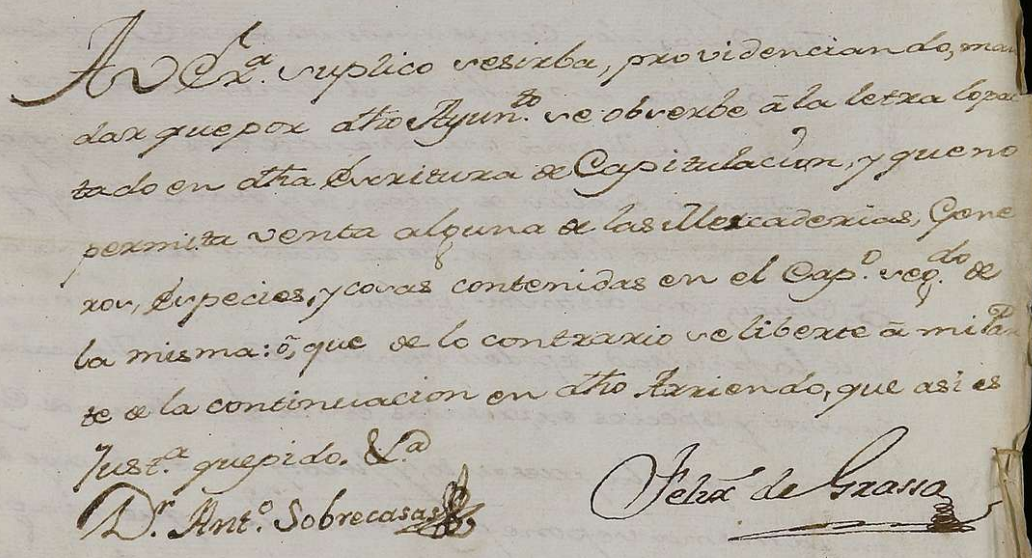 A V Exª. suplico se sirba, providenciando, man
dar que por dho Ayunto. se obserbe â la letra lo pac
tado en dha Escritura de Capitulacion, y que no
permita venta alguna de las Mercaderias, Gene
ros, Especies, y cosas contenidas en el Capº. segdo. de
la misma: ô, que de lo contrario se liberte â mi Par
te de la continuacion en dho Arriendo, que asi es
Justª. que pido. &ª
Dr. Antº. Sobrecasas Felix de Grassa